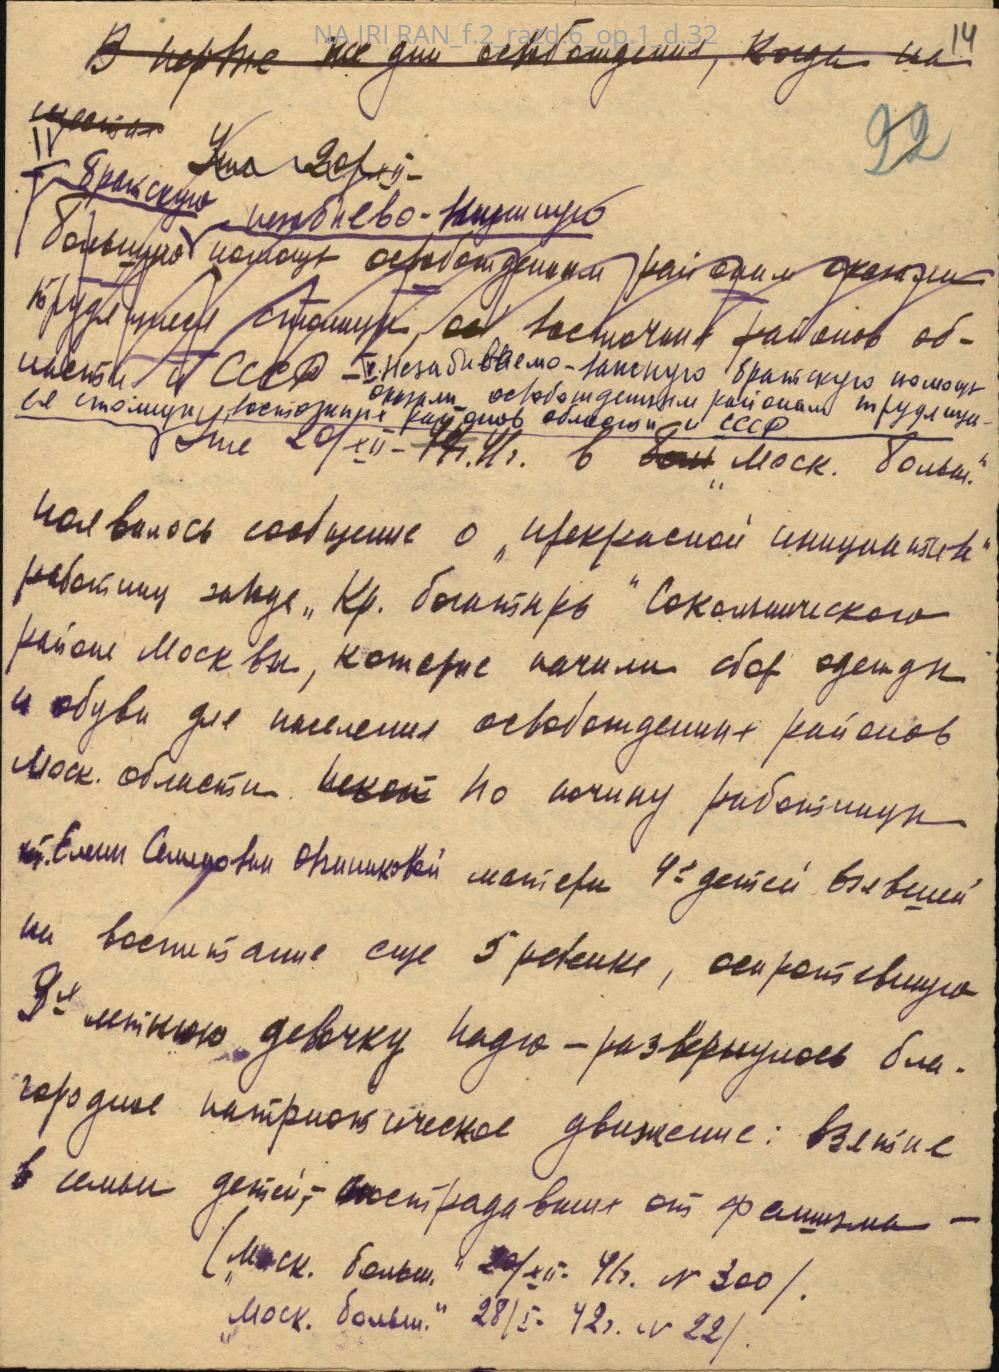 NA IRI RAN_f.2_razd.6_op.1_d.32
14
В первые же дни освобождения, когда на
местах
92
IV
Уже 20/XII-
Братскую
незабываемо-
Большую помощь освобожденным районам оказали
трудящиеся столицы, восточных районов об-
ласти и СССР - V. Незабываемо- братскую помощь
оказали освобожденным районам трудящи-
еся столицы, восточных районов области и СССР
Уже 20/XII-41г. в "Моск. больш."
появилось сообщение о "прекрасной инициативе"
работниц завода "Кр. богатырь" Сокольнического
района Москвы, которые начали сбор одежды
и обуви для населения освобожденных районов
Моск. области. По почину работницы
Елены Семеновны Овчинниковой матери 4х детей взявшей
на воспитание еще 5 ребенка, осиротевшую
3х летнюю девочку Надю - развернулось бла-
городное патриотическое движение: взятие
в семьи детей, пострадавших от фашизма -
("Моск. больш." 20/XII- 41г. № 300/.
"Моск. больш." 28/I- 42г. № 22/.